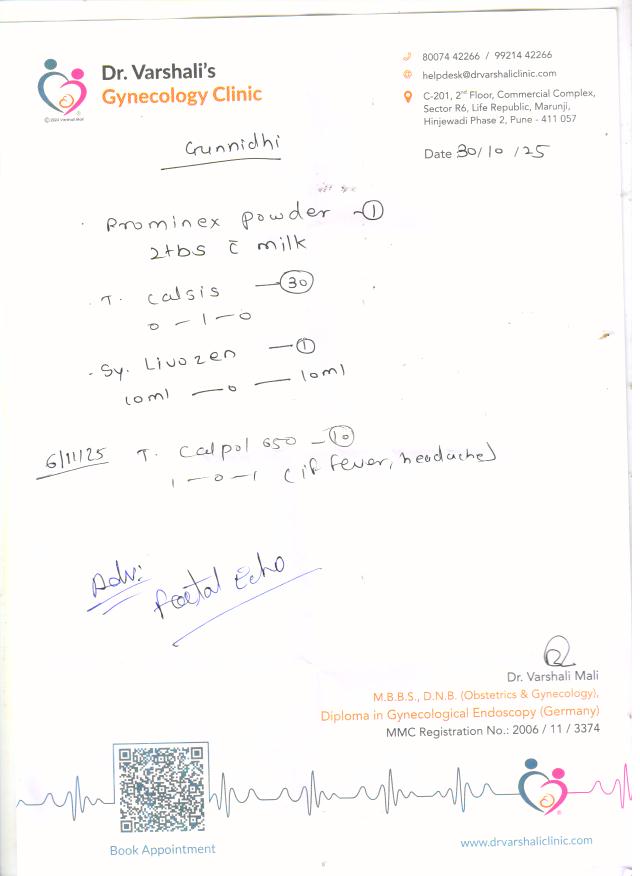 Dr. Varshali's
Gynecology Clinic
©2024 Varshali Mali
80074 42266 / 99214 42266
helpdesk@drvarshaliclinic.com
C-201, 2nd Floor, Commercial Complex,
Sector R6, Life Republic, Marunji,
Hinjewadi Phase 2, Pune - 411 057
Date 30/10/25
Gunnidhi
Prominex powder - 1
2tbs c̄ milk
T. Calsis - 30
0 - 1 - 0
Sy. Livozen - 1
10ml - 0 - 10ml
6/11/25 T. Calpol 650 - 10
1 - 0 - 1 (if fever, headache)
Adv:
Foetal Echo
Dr. Varshali Mali
M.B.B.S., D.N.B. (Obstetrics & Gynecology),
Diploma in Gynecological Endoscopy (Germany)
MMC Registration No.: 2006 / 11 / 3374
Book Appointment
www.drvarshaliclinic.com